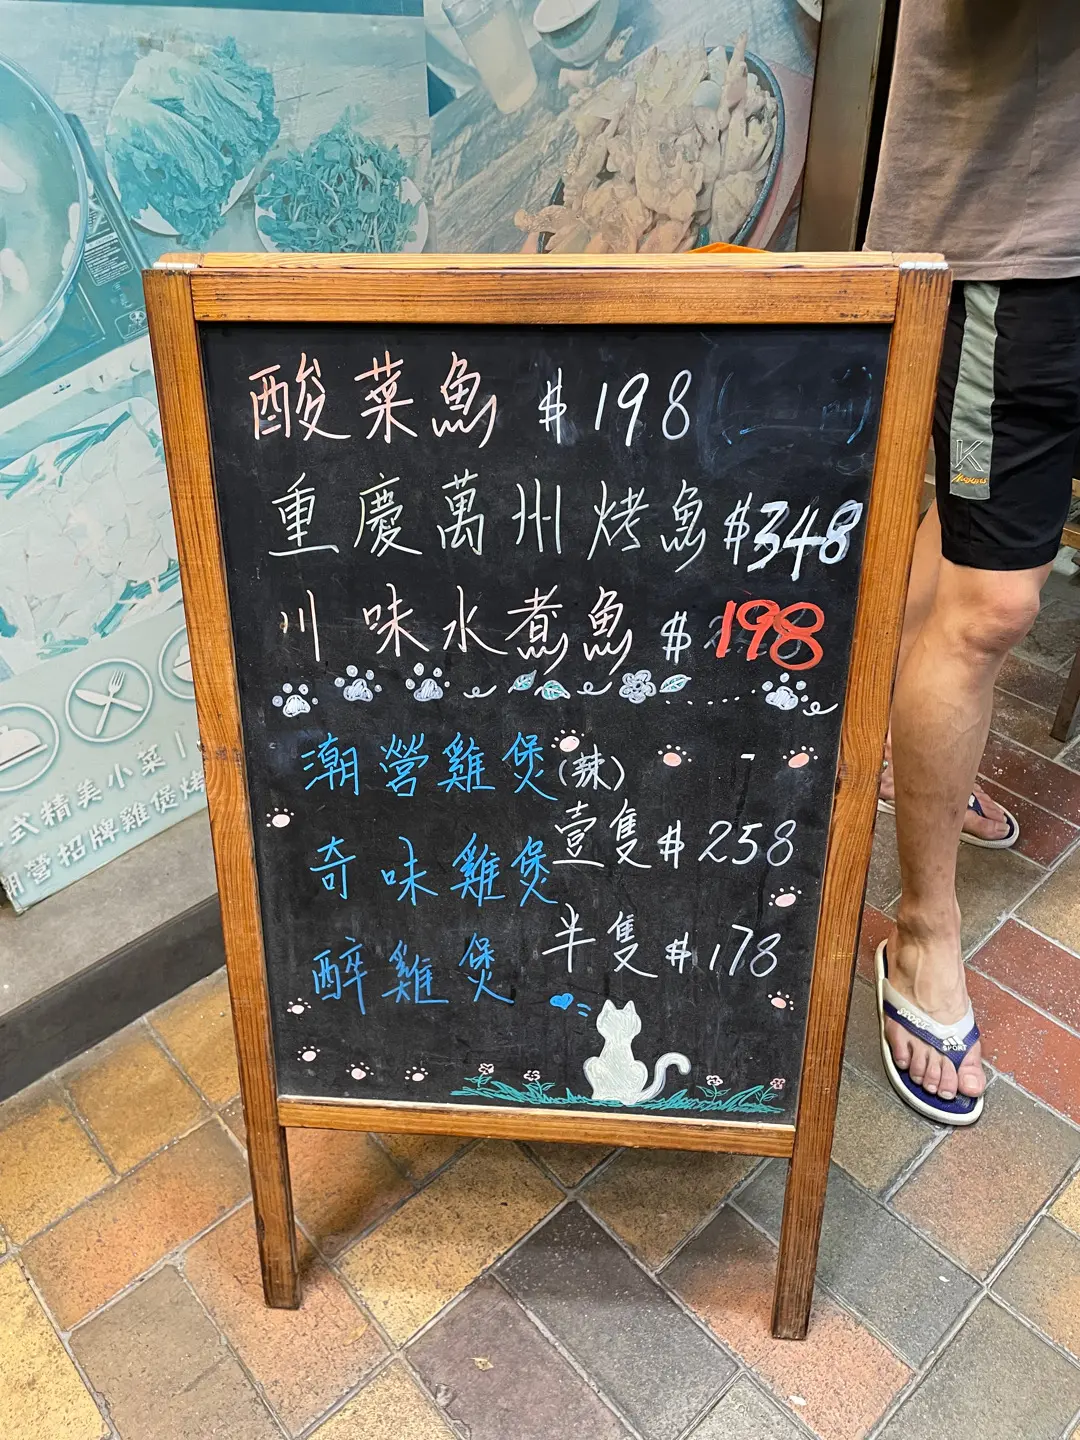 酸菜魚 $198
重慶萬州烤魚 $348
川味水煮魚 $198
潮營雞煲(辣)
壹隻 $258
奇味雞煲
半隻 $178
醉雞煲
式精美小菜 |
潮營招牌雞煲烤
K
SPORT
SPORT